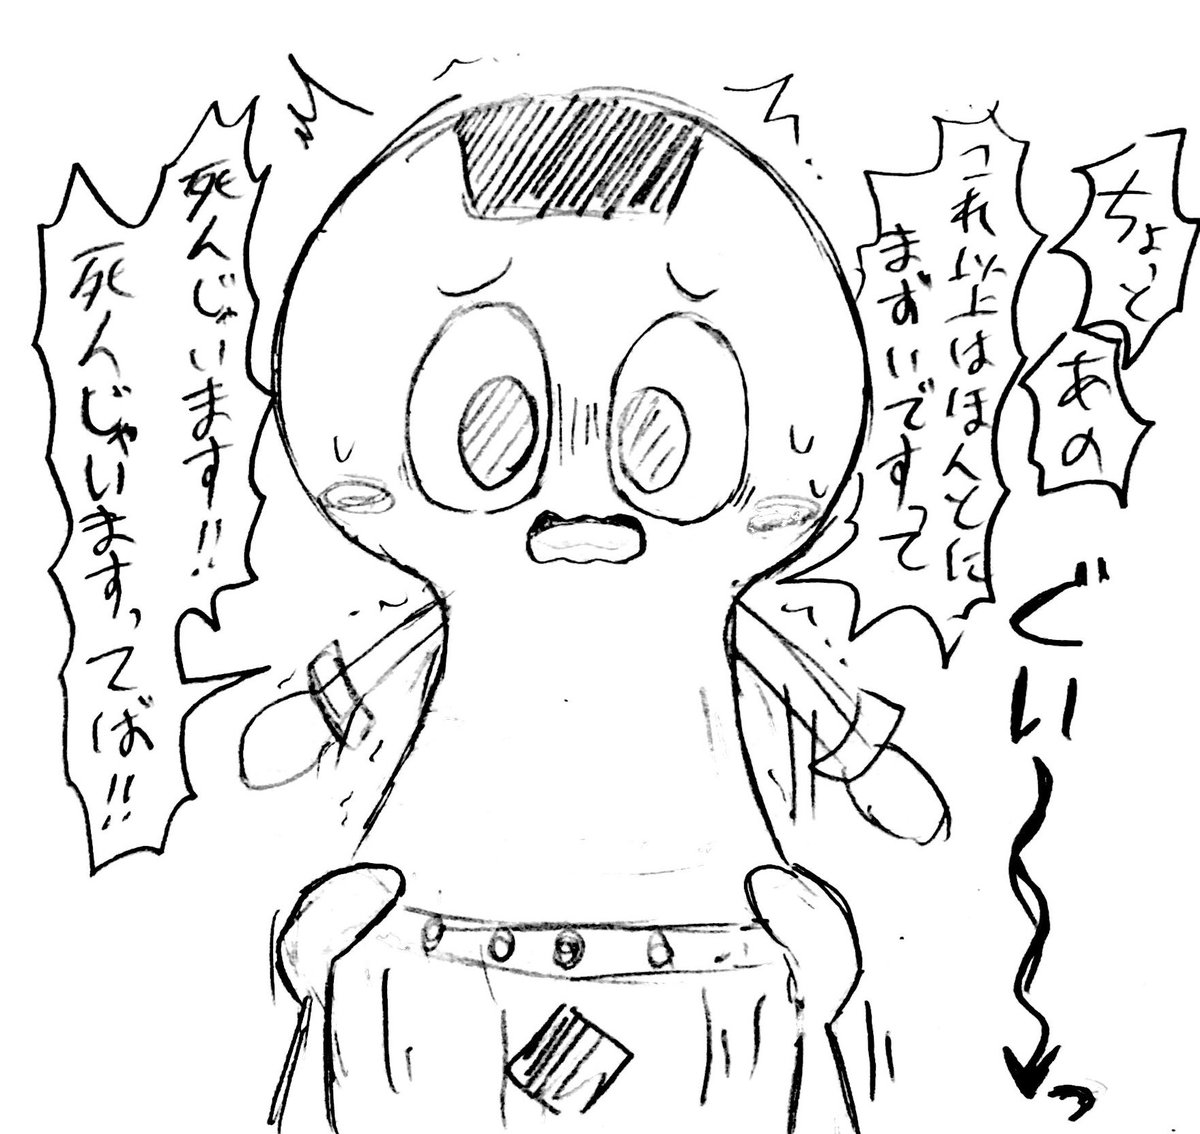 ちょっと
あの
これ以上はほんとに
まずいですって
ぐい〜〜っ
死んじゃいます!!
死んじゃいますってば!!